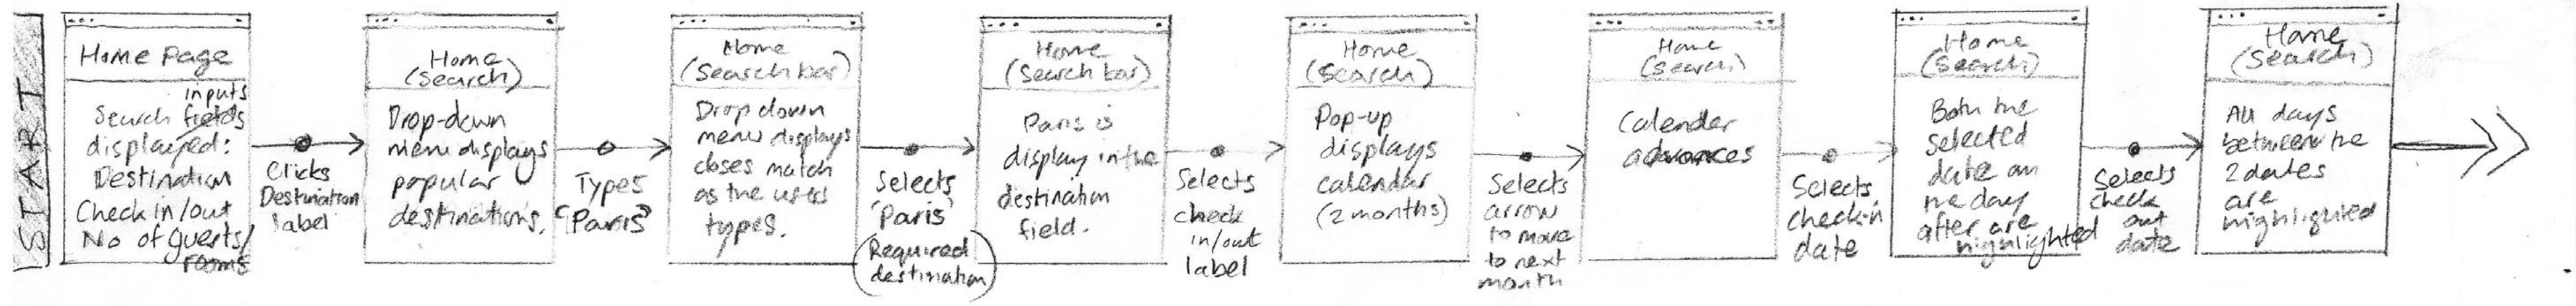 START
Home Page
Search inputs fields
displayed:
Destination
Check in/out
No of guests/
rooms
Clicks
Destination
label
Home
(Search)
Drop-down
menu displays
popular
destinations.
Types
"Paris"
Home
(Search bar)
Drop down
menu displays
closes match
as the user
types.
Selects
'Paris'
(Required
destination)
Home
(Search bar)
Paris is
display in the
destination
field.
Selects
check
in/out
label
Home
(Search)
Pop-up
displays
calendar
(2 months)
Selects
arrow
to move
to next
month
Home
(Search)
Calender
advances
Selects
check-in
date
Home
(Search)
Both the
selected
date an
the day
after are
highlighted
Selects
check
out
date
Home
(Search)
All days
between the
2 dates
are
highlighted